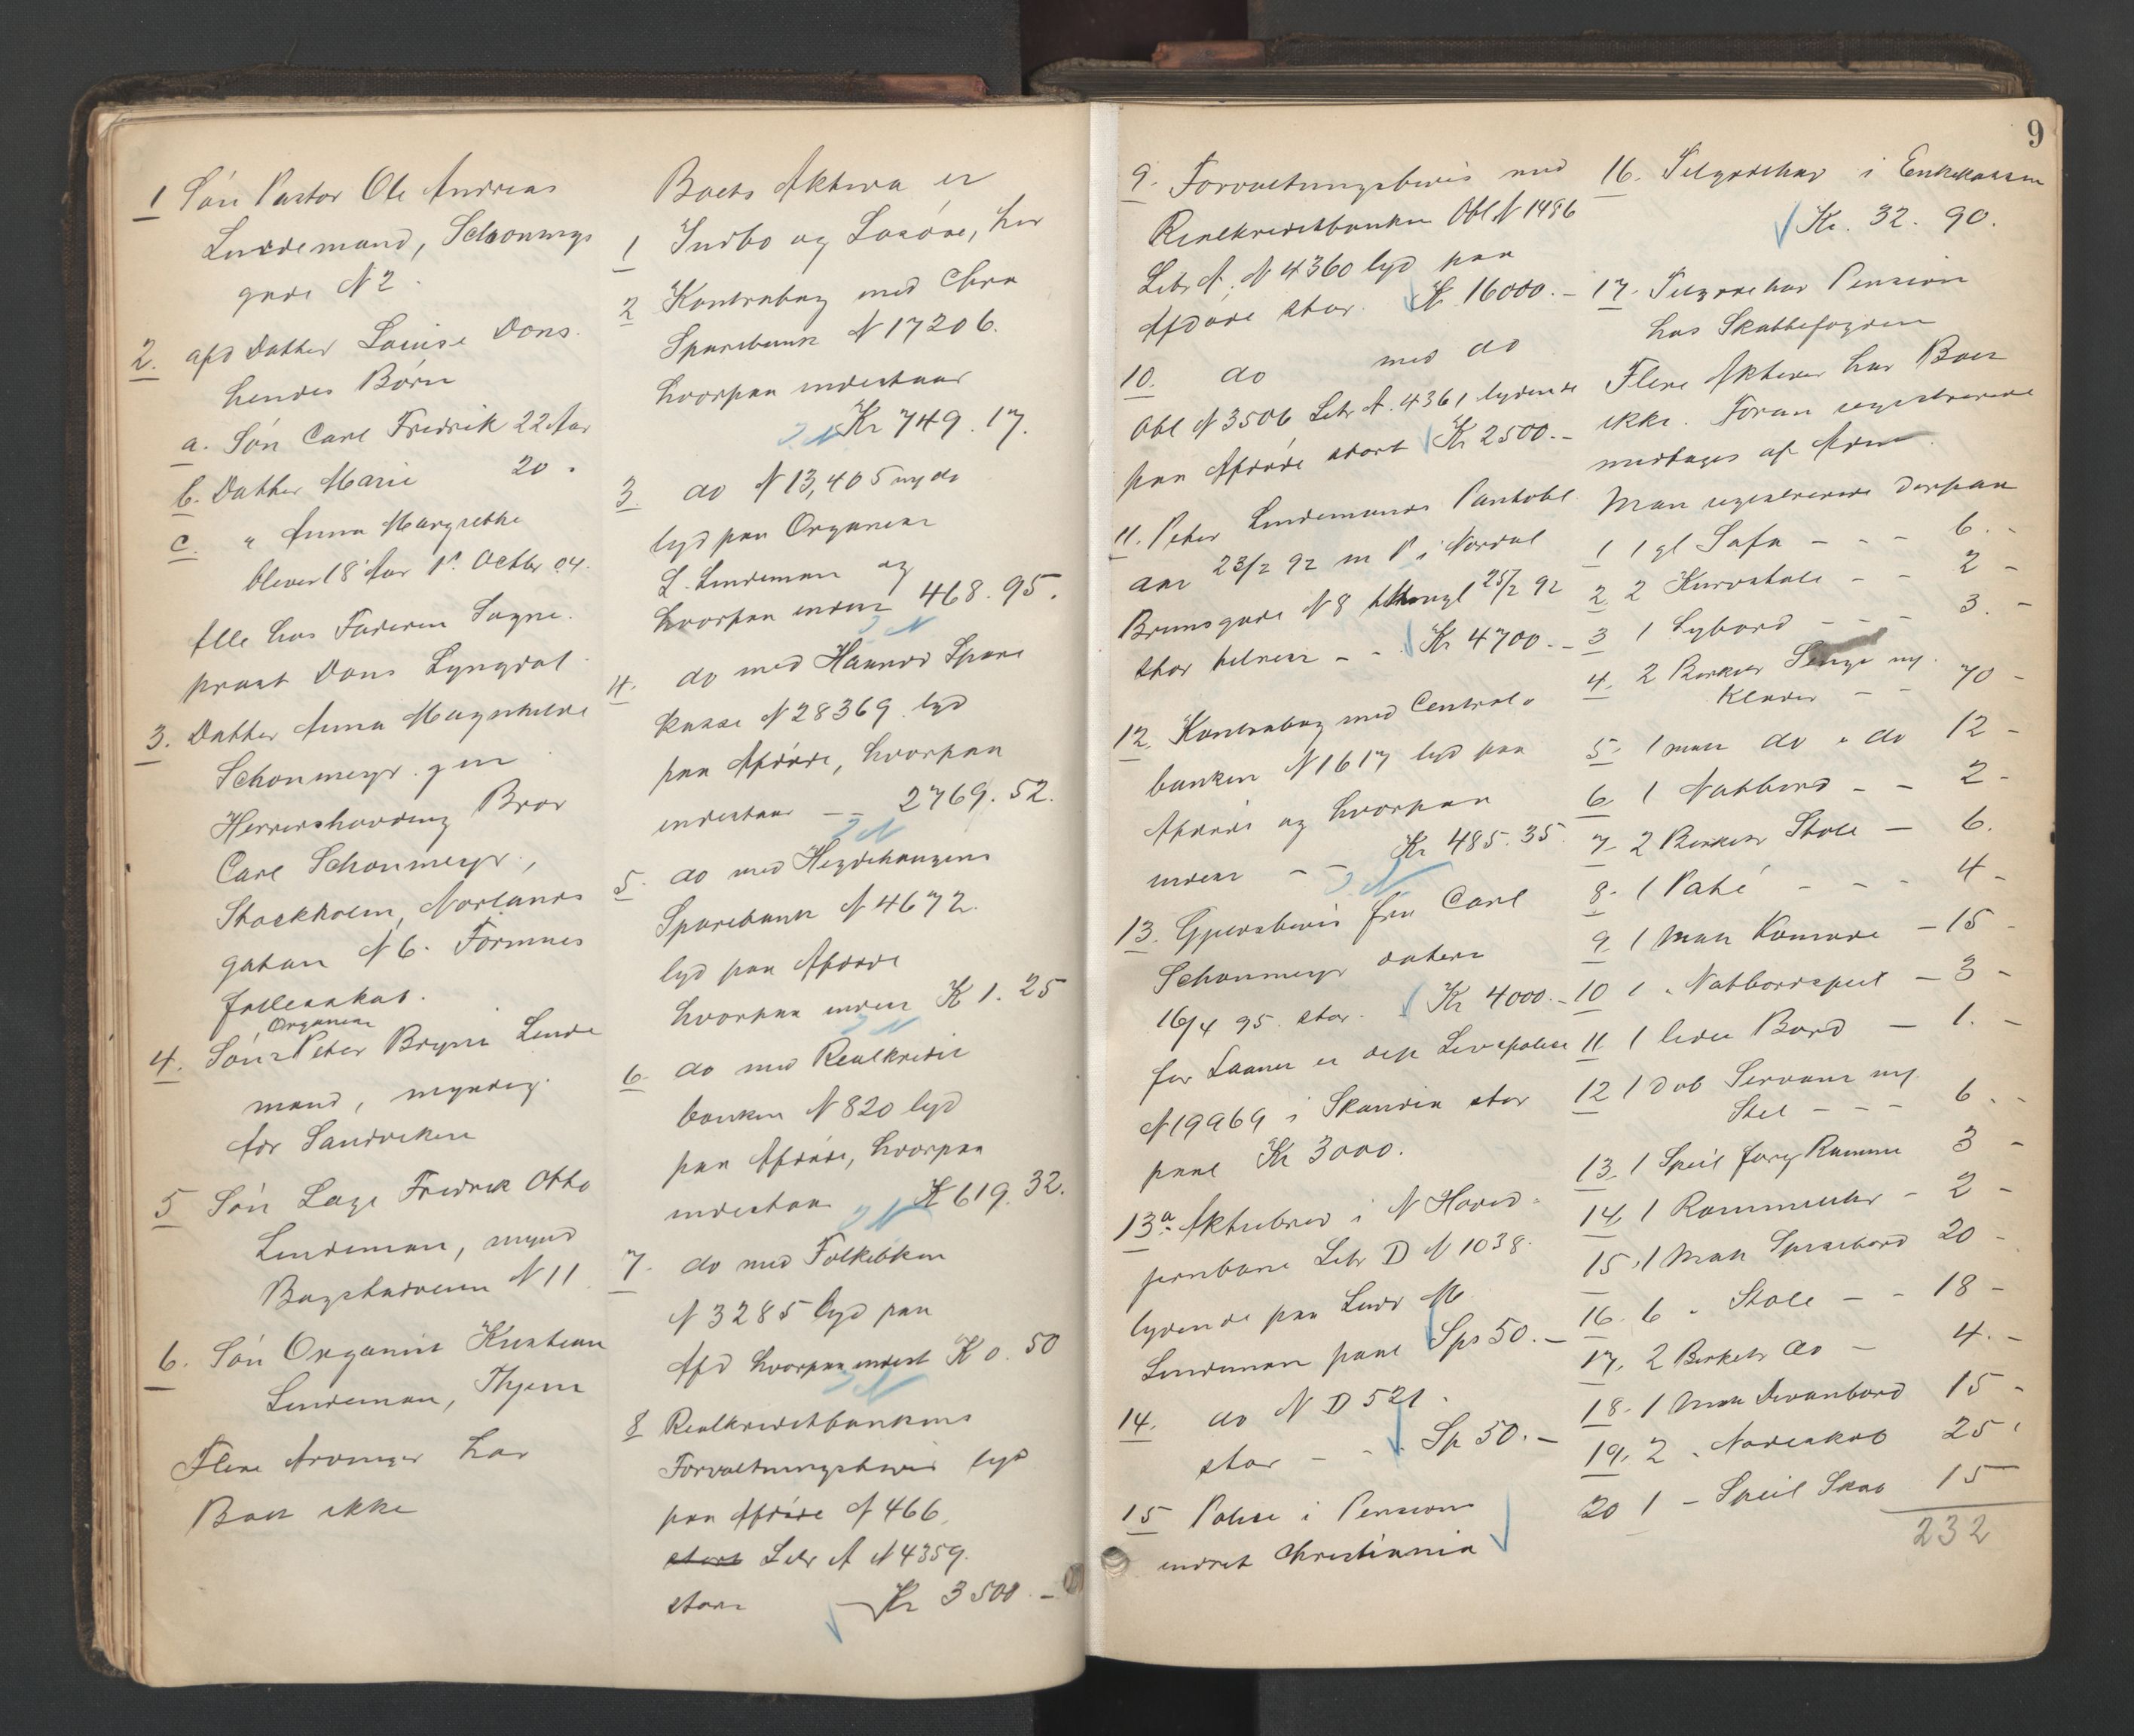 1 Søn Pastor Ole Andreas
Lindemand, Schønnings
gade N 2.
2. afd Datter Louise Dons.
hendes Børn
a. Søn Carl Fredrik 22 Aar
b. Datter Marie 20 "
c. " Anna Margrethe
bliver 18 Aar 1st Octbr 04.
Alle hos Faderen Sogne-
præst Dons Lyngdal
3. Datter Anna Magnhilde
Schönmeyr gm
Herredshøvding Bror
Carl Schönmeyr,
Stockholm, Norlands
gatan N 6. Formues
fællesskab.
Organist
4. Søn Peter Brynie Linde
mand, myndig.
Adr Sandviken
5 Søn Lage Fredrik Otto
Lindeman, mynd
Bogstadveien N 11
6. Søn Organist Kristian
Lindeman, Thjem
Flere Arvinger har
Boet ikke
Boets Aktiva er
1 Indbo og Løsøre, her
2 Kontrabog med Chra
Sparebank N 17206.
hvorpaa indestaar
Kr 749.17.
3 do N 13,405 ny do
lyd paa Organist
L. Lindeman og
hvorpaa indest 468.95.
4. do med Hammers Spare
kasse N 28369 lyd
paa Afdøde, hvorpaa
indestaar -- 2769.52.
5. do med Hegdehaugens
Sparebank N 4672.
lyd paa Afdøde
hvorpaa indest K 1.25
6. do med Realkredit
banken N 820 lyd
paa Afdøde, hvorpaa
indestaar K 619.32.
7. do med Folkebken
N 3285 lyd paa
Afd hvorpaa indest K 0.50
8 Realkreditbankens
Forvaltningsbevis lyd
paa Afdøde N 466,
stort Litr A N 4359.
stort - Kr 3500.-
9
9. Forvaltningsbevis med
Realkreditbanken Obl N 1486
Litr A. N 4360 lyd paa
Afdøde stor. Kr 16000.-
10. do med do
Obl N 3506 Litr A. 4361 lydende
paa Afdøde stort Kr 2500.-
11. Peter Lindemans Pantobl
dat 23/2 92 m P i Nordal
Brunsgade N 8 thingl 25/2 92
stor tilrest - - Kr 4700.-
12. Kontrabog med Central-
banken N 1617 lyd paa
Afdøde og hvorpaa
indest - - Kr 485.35.
13. Gjeldsbevis fra Carl
Schönmeyr dateret
16/4 95. stor. Kr 4000.-
for Laanet er dep Livspolise
N 19969 i Skandia stor
paal Kr 3000.
13a. Aktiebrev i N Hoved-
jernbane Litr D N 1038.
lydende paa Ludv M.
Lindeman paal Sps 50.-
14. do N D 521.
stor - - Sp 50.-
15 Police i Pensions
indret Christiania
16. Tilgodehav i Enkekassen
Kr. 32.90.
17. Tilgodehav Pension
hos Skattefogden
Flere Aktiver har Boet
ikke. Foran registrerede
medtages af Arve
Man registrerede derpaa
1 1 gl Sofa - - - 6.-
2 2 Kurvstole - - 2 -
3 1 Sybord - - - 3.-
4. 2 Birkets Senge m.
Klæder - - 70 -
5. 1 mah do " do 12 -
6 1 Natbord - - 2 -
7 2 Birkets Stole - 6.
8. 1 Paté - - - 4 -
9. 1 mah Komode - 15 -
10 1 " Natbordspeil - 3 -
11 1 lidet Bord - 1.-
12 1 dob Servant m.
Stel - - - 6.-
13. 1 Speil forg Ramme 3 -
14. 1 Kommodeur - 2 -
15. 1 mah Spisebord 20 -
16. 6 " Stole - - 18 -
17. 2 Birkets do - 4.-
18. 1 mah Divanbord 15 -
19. 2 " Nodeskab 25 "
20 1 - Speil Skab 15
232